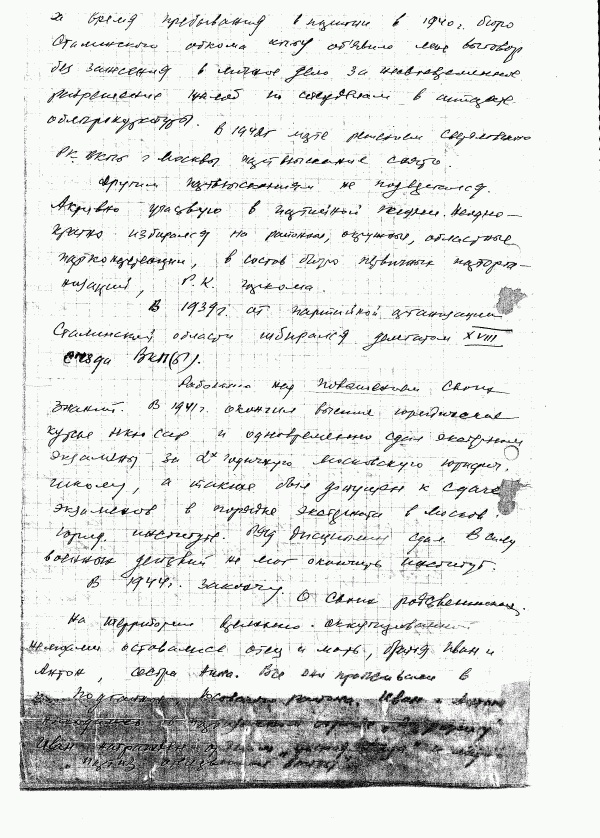 За время пребывания в партии в 1940 г. бюро
Сталинского обкома КП(б)У объявило мне выговор
без занесения в личное дело за несвоевременное
разрешение жалоб по следделам в
облпрокуратуры.
В 1942 г. марте решением Свердловского
РК ВКП(б) г. Москвы партвзыскание снято.
Другим партвзысканиям не подвергался.
Активно участвую в партийной жизни. Неодно-
кратно избирался на районные, окружные, областные
партконференции, в состав бюро первичных парторга-
низаций, Р.К. Горкома.
В 1939 г. от партийной организации
Сталинской области избирался делегатом XVIII
съезда ВКП(б).
Работаю над повышением своих
знаний. В 1941 г. окончил высшие юридические
курсы НКЮ СССР и одновременно сдал экстерном
экзамены за 2х годичную Московскую юридич.
школу, а также был допущен к сдаче
экзаменов в порядке экстерната в Москов.
юрид. институте. Ряд дисциплин сдал. В силу
военных действий не мог окончить институт.
В 1944 г. закончу.
О своих родственниках.
На территории временно оккупированной
немцами оставались отец и мать, братья Иван и
Антон, сестра Анна. Все они проживали в
района. Иван и Антон
Иван